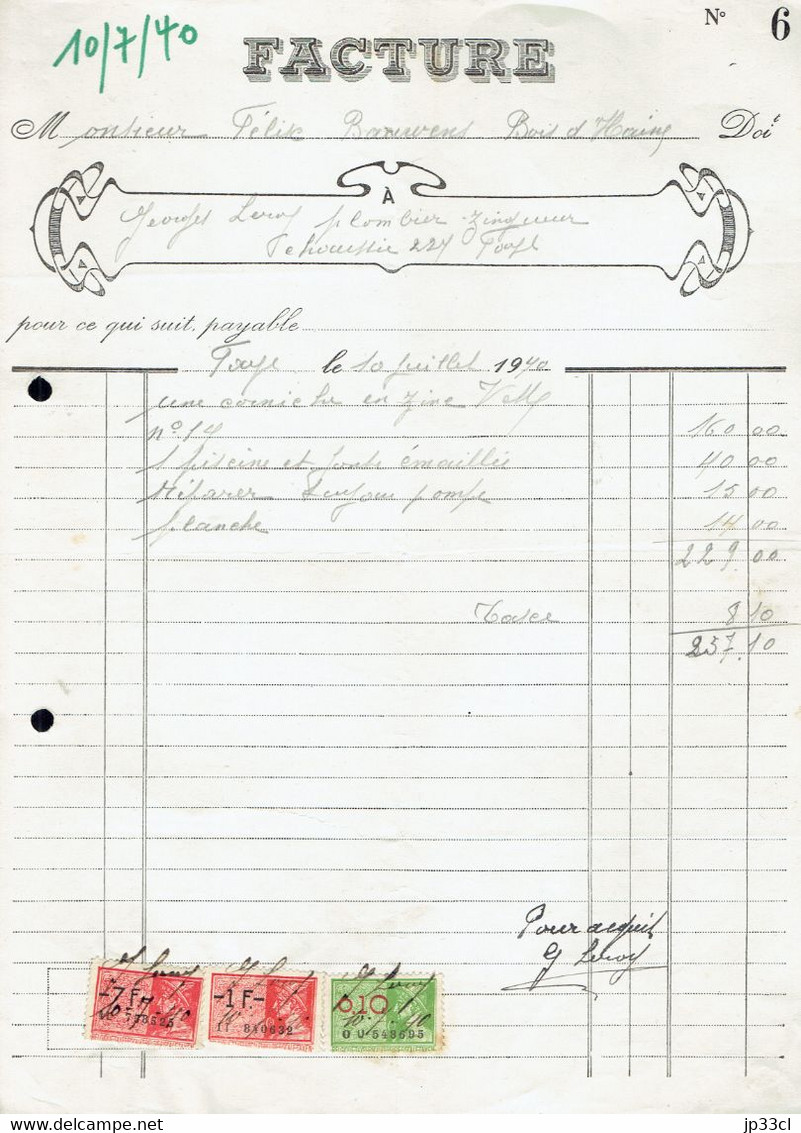 10/7/40
FACTURE
N° 6
Monsieur Félix Bauwens Bois d'Haine Doit
À
Georges Leroy plombier-zingueur
227 Fayt
pour ce qui suit, payable
Fayt le 10 juillet 1940
une corniche en zinc V M
n° 14 160 00
1 piscine et fonte émaillée 40 00
Réparer pompe 15 00
planche 14 00
229.00
Taxe 8 10
237.10
Pour acquit
G Leroy
G Leroy G Leroy G Leroy
-7 F- -1 F- 0,10
840632 OU 548695
delcampe.net
jp33cl